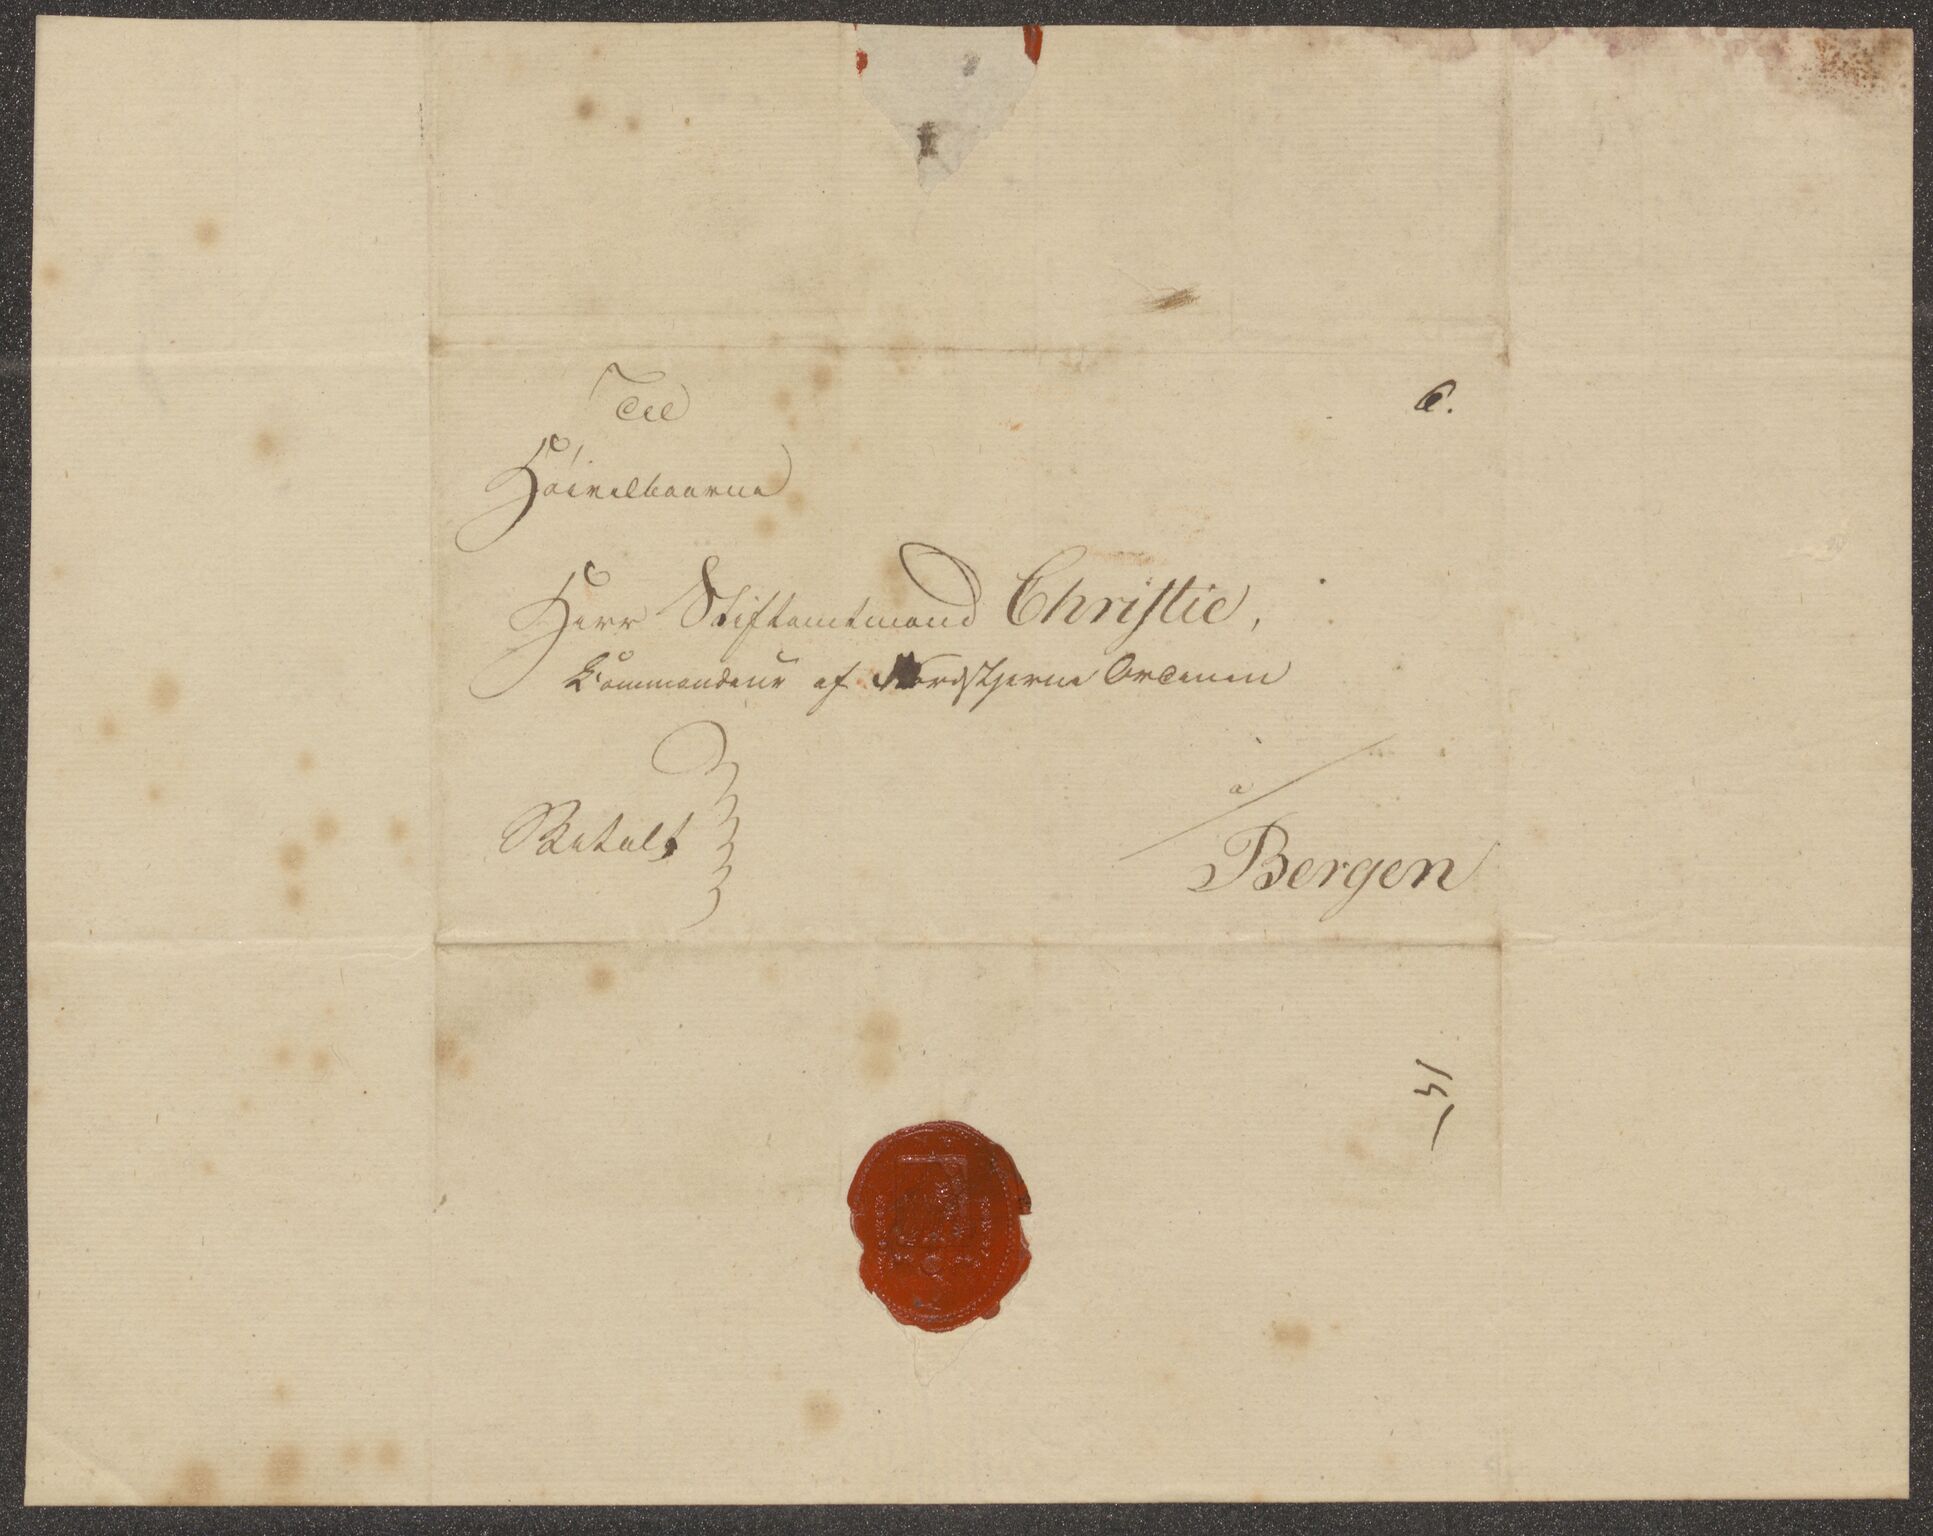 Til
6.
Høivelbaarne
Herr Stiftamtmand Christie,
Commandeur af Nordstjerne Ordenen
Betalt
a
Bergen